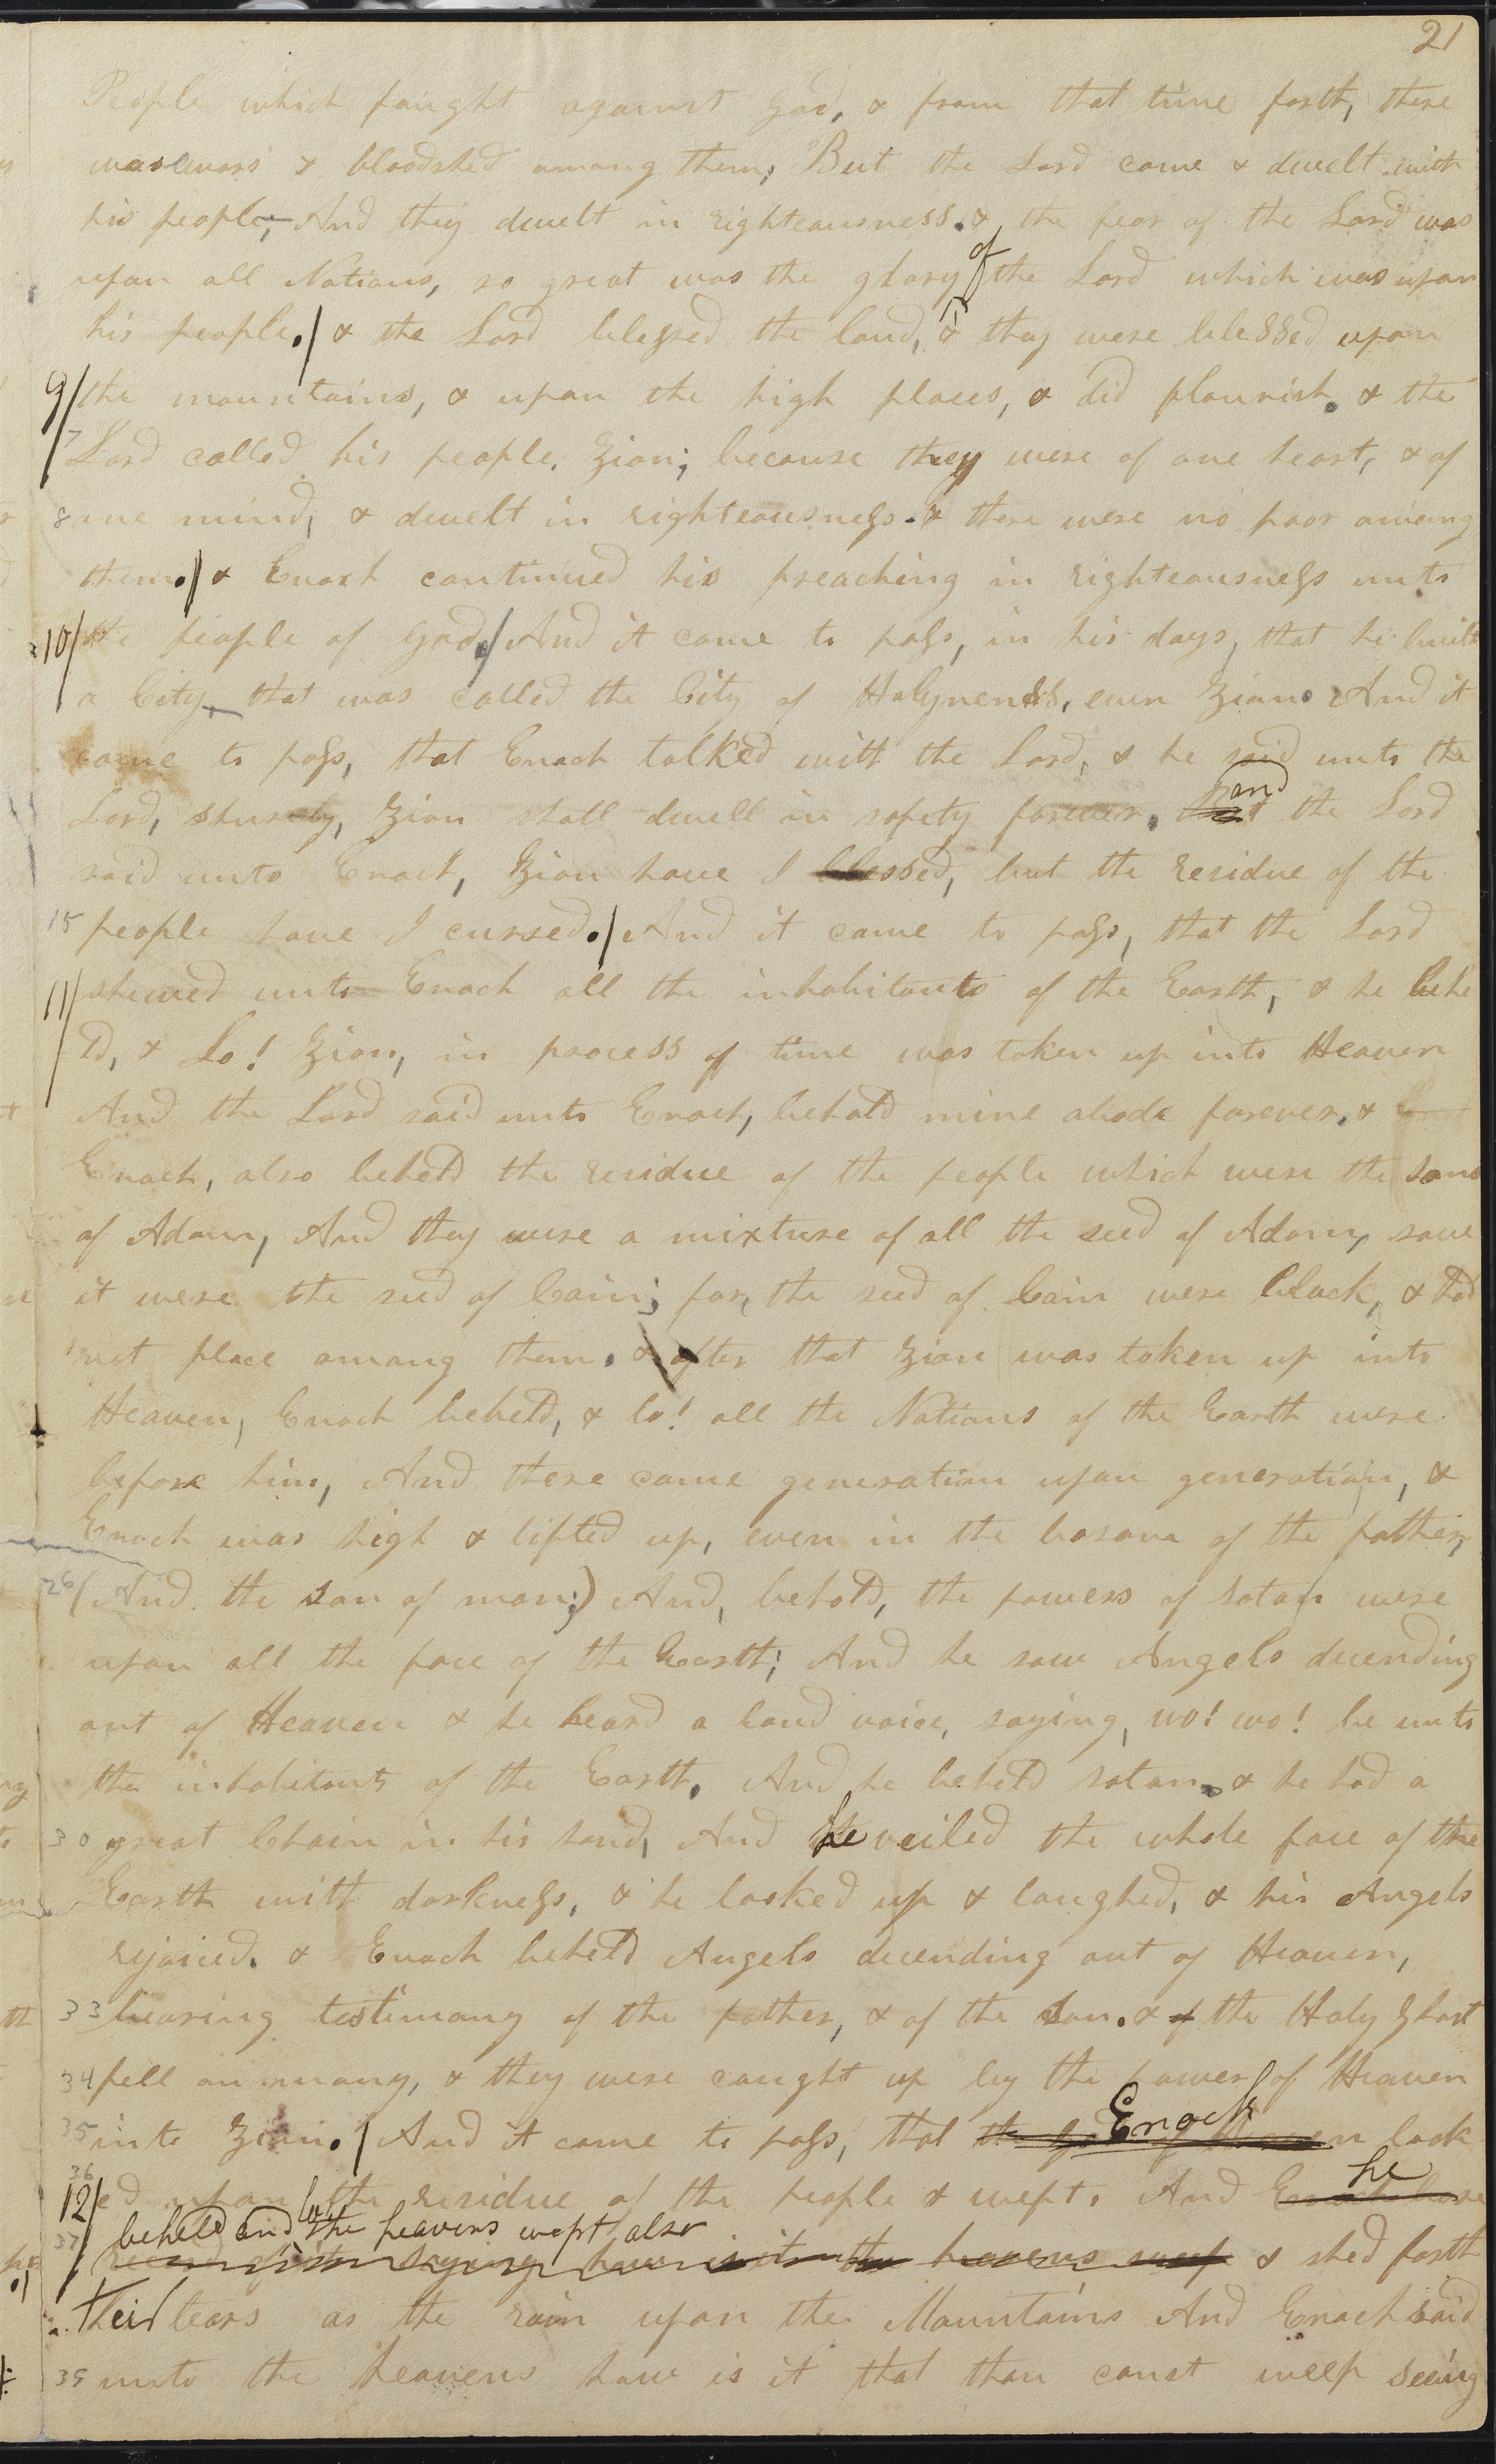 21
People which faught against God, & from that time forth, there
was wars & bloodshed among them, But the Lord came & dwelt with
his people, And they dwelt in righteousness. & the fear of the Lord was
upon all Nations, so great was the glory of the Lord which was upon
his people./ & the Lord blessed the land, & they were blessed upon
9/ the mountains, & upon the high places, & did flourish. & the
7 Lord called his people, Zion; because they were of one heart, & of
8 one mind, & dwelt in righteousness. & there were no poor among
them./ & Enoch continued his preaching in righteousness unto
10/ the people of God./ And it came to pass, in his days, that he built
a City that was called the City of Holyness, even Zion. And it
came to pass, that Enoch talked with the Lord, & he said unto the
Lord, shurely, Zion shall dwell in safety forever. and the Lord
said unto Enoch, Zion have I blessed, but the residue of the
15 people have I cursed./ And it came to pass, that the Lord
11/ shewed unto Enoch all the inhabitants of the Earth, & he behe
ld, & Lo! Zion, in process of time was taken up into Heaven
And the Lord said unto Enoch, behold mine abode forever. &
Enoch, also beheld the residue of the people which were the sons
of Adam, And they were a mixture of all the seed of Adam, save
it were the seed of Cain; for, the seed of Cain were black, & had
not place among them. & after that Zion was taken up into
Heaven, Enoch beheld, & lo! all the Nations of the Earth were
before him, And there came generation upon generation, &
Enoch was high & lifted up, even in the bosom of the father,
26 (And the son of man;) And, behold, the powers of satan were
upon all the face of the Earth; And he saw Angels decending
out of Heaven & he heard a loud voice, saying, wo! wo! be unto
the inhabitants of the Earth. And he beheld satan, & he had a
30 great Chain in his hand, And he veiled the whole face of the
Earth with darkness, & he looked up & laughed, & his Angels
rejoiced. & Enoch beheld Angels decending out of Heaven,
33 bearing testimony of the father, & of the Son. & of the Holy Ghost
34 fell on many, & they were caught up by the power of Heaven
35 into Zion./ And it came to pass, that the God of Heaven Enoch look
36
12/ ed upon the residue of the people & wept. And he
37 behold and lo the heavens wept also
saying how is it the heavens weep & shed forth
their tears as the rain upon the Mountains And Enoch said
39 unto the heavens how is it that thou canst weep seeing